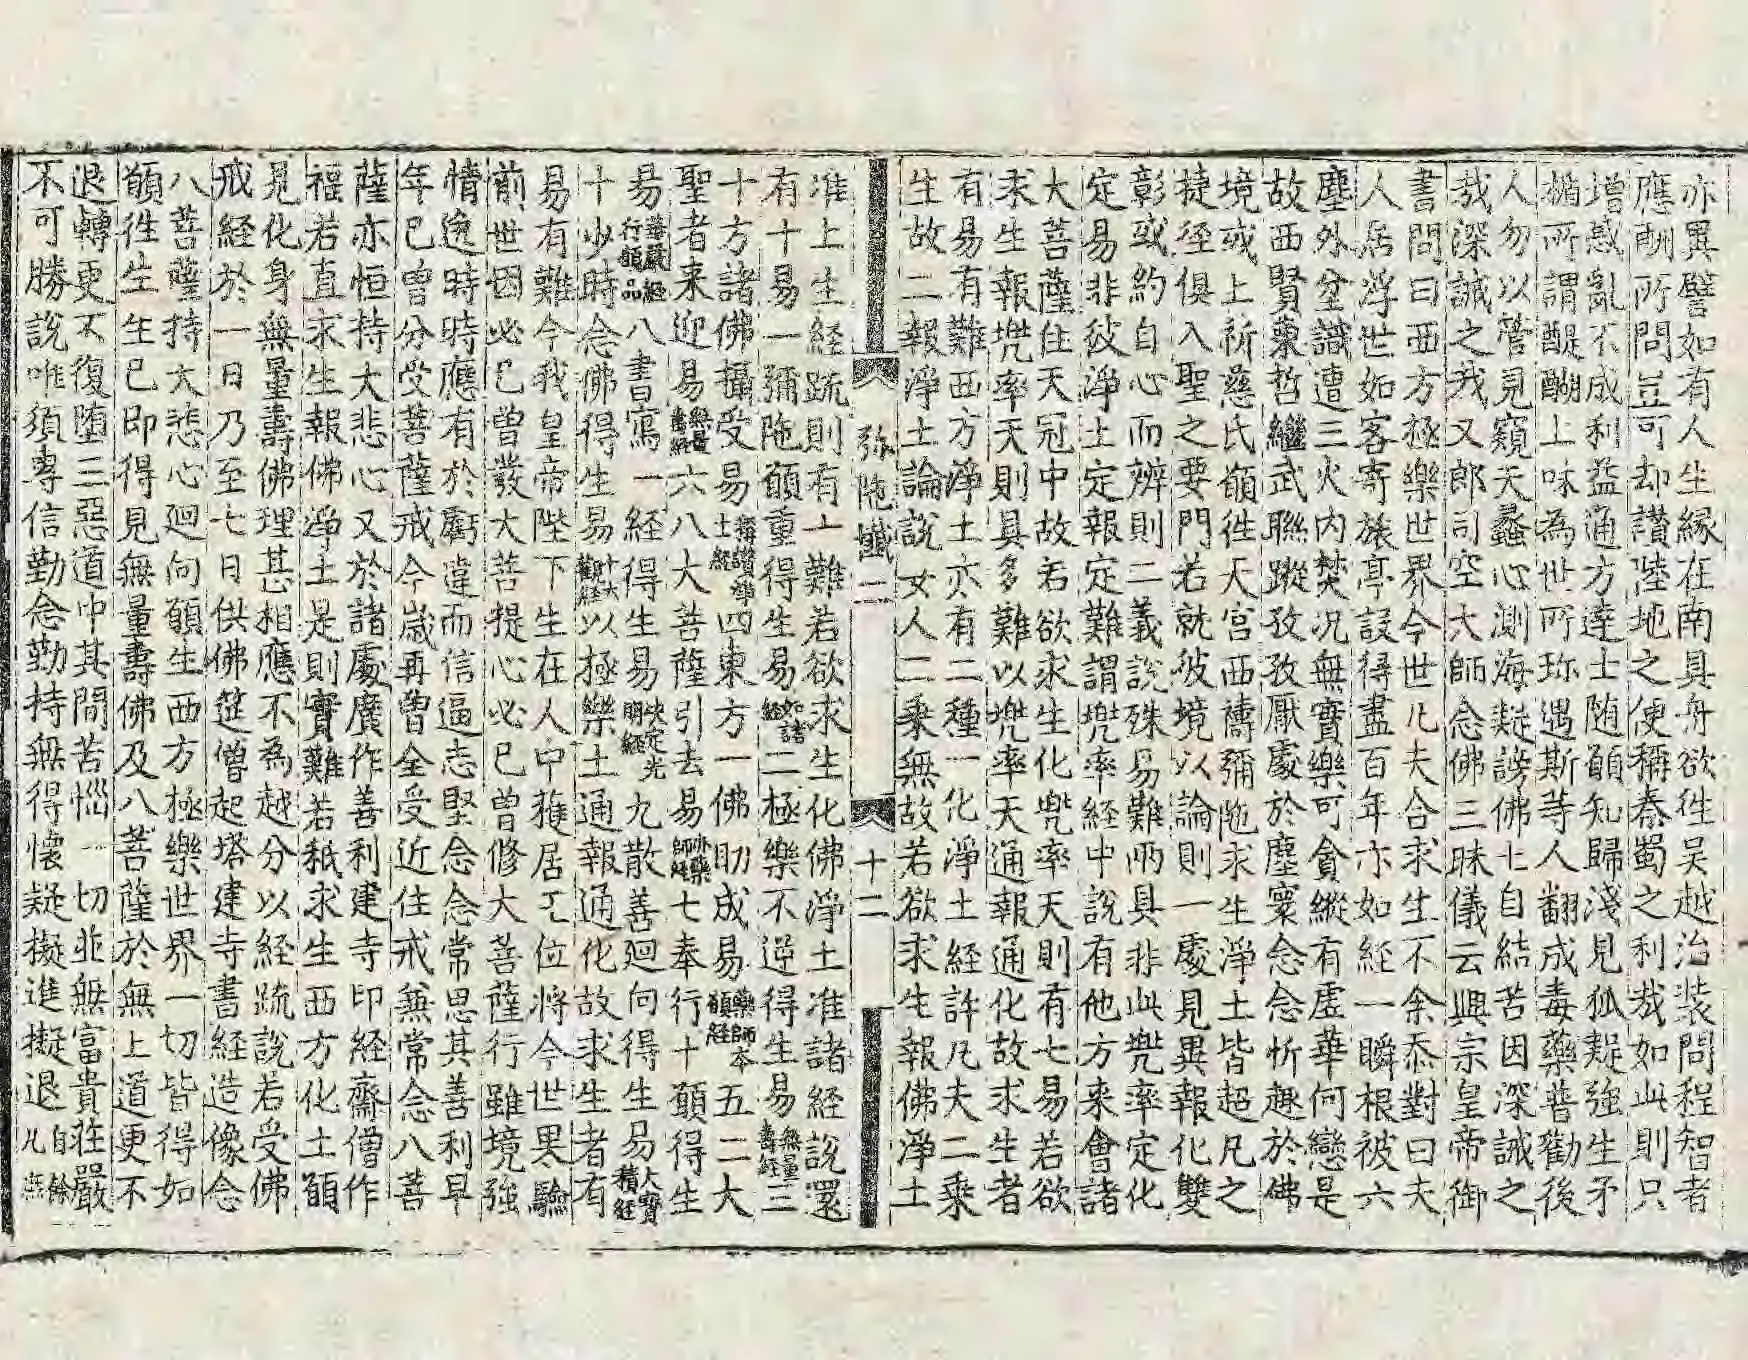 亦異譬如有人生緣在南具舟欲徃吴越治装問程智者
應酬所問豈可却讃陸地之便稱秦蜀之利㢤如此則只
增惑亂不成利益通方達士随願知歸淺見狐疑強生矛
楯所謂醍醐上味為世所珎遇斯等人翻成毒藥普勸後
人勿以管見窺天蠡心測海疑謗佛土自結苦因深誡之
㢤深誡之㢤又郎司空大師念佛三昧儀云興宗皇帝御
書問曰西方極樂世界今世凡夫合求生不余忝對曰夫
人居浮世如客寄旅亭設得盡百年亦如經一瞬根被六
塵外坌識遭三火内焚况無實樂可貪縱有虚華何戀是
故西賢東哲繼武聯蹤孜孜厭處於塵寰念念忻趣於佛
境或上祈慈氏願徃天宮西禱彌陁求生淨土皆超凡之
捷徑俱入聖之要門若就彼境以論則一處見異報化雙
彰或約自心而辨則二義說殊易難兩具非此兠率定化
定易非彼淨土定報定難謂兠率經中說有他方來會諸
大菩薩住天冠中故若欲求生化兠率天則有七易若欲
求生報兠率天則具多難以兠率天通報通化故求生者
有易有難西方淨土亦有二種一化淨土經許凡夫二乘
生故二報淨土論說女人二乘無故若欲求生報佛淨土
弥陁懺二 十二
准上生經䟽則有十難若欲求生化佛淨土准諸經說還
有十易一彌陁願重得生易如諸經二極樂不逆得生易無量壽經三
十方諸佛攝受易稱讃淨土經四東方一佛助成易藥師本願經五二大
聖者来迎易無量壽經六八大菩薩引去易亦藥師經七奉行十願得生
易華嚴經行願品八書寫一經得生易决定光明經九散善廻向得生易大寶積經
十少時念佛得生易十六觀經以極樂土通報通化故求生者有
易有難今我皇帝陛下生在人中蓷居王位將今世果驗
前世因必已曽發大菩提心必已曽修大菩薩行雖境強
情逸時時應有於虧違而信逼志堅念念常思其善利早
年已曽分受菩薩戒今歳再曽全受近住戒兼常念八菩
薩亦恒持大悲心又於諸處廣作善利建寺印經齋僧作
福若直求生報佛淨土是則實難若秖求生西方化土願
見化身無量壽佛理甚相應不為越分以經䟽說若受佛
戒經於一日乃至七日供佛筵僧起塔建寺書經造像念
八菩薩持大悲心廻向願生西方極樂世界一切皆得如
願徃生生已即得見無量壽佛及八菩薩於無上道更不
退轉更不復墮三惡道中其間苦惱一切非無富貴荘嚴
不可勝說唯須專信勤念勤持無得懷疑擬進擬退自餘凡無